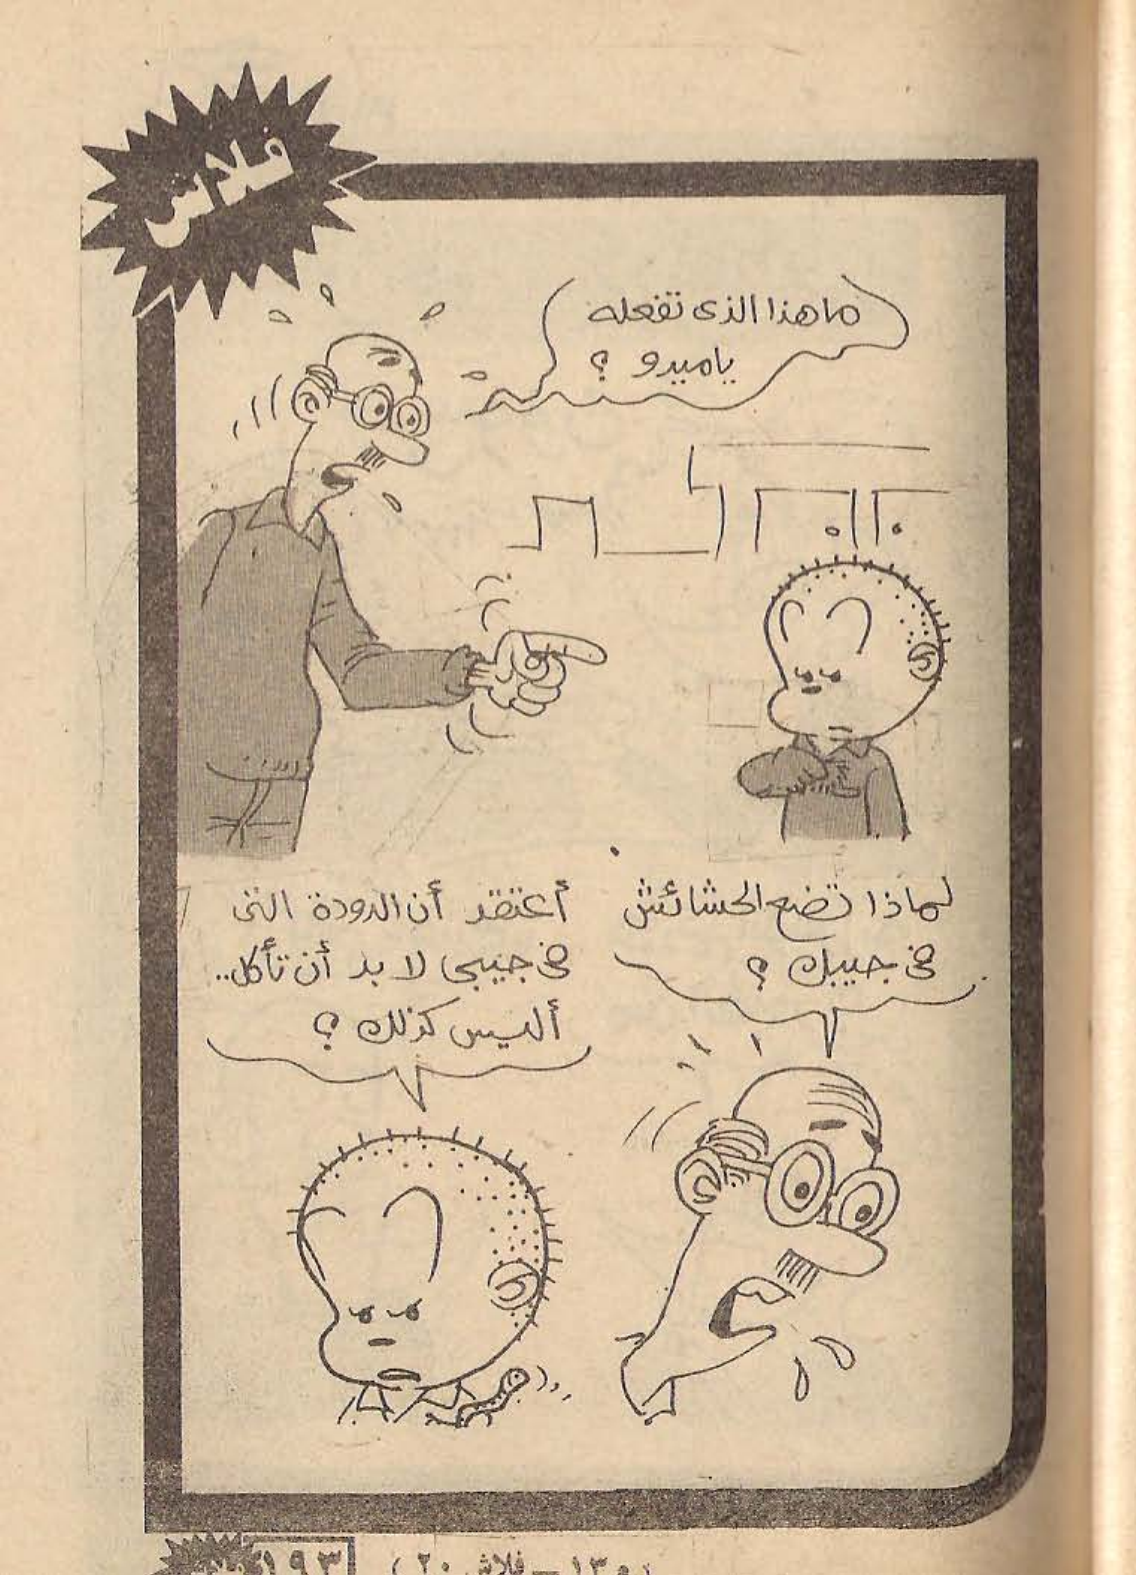 فلاش
ماهذا الذى تفعله
ياميدو ؟
لماذا تضع الحشائش
فى جيبك ؟
أعتقد أن الدودة التى
فى جيبى لا بد أن تأكل..
أليس كذلك ؟
( م ١٣ — فلاش ٢٠ )
١٩٣